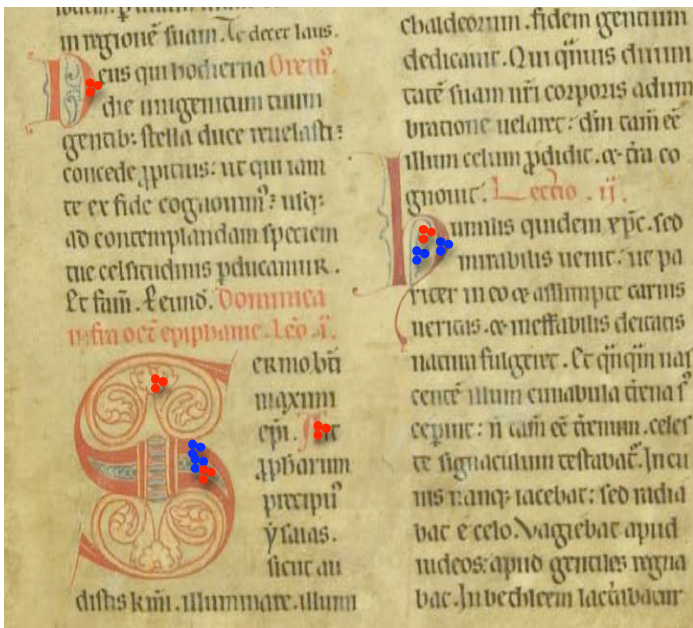 in regionē suam. Te decet laus.
Deus qui hodierna Orem᷒.
die unigenitum tuum
gentib; stella duce reuelasti:
concede ꝓpitius: ut qui iam
te ex fide cognouim᷒: usq;
ad contemplandam speciem
tue celsitudinis ꝑducamur.
Et fam̄. Domınıca
infra oct̄ epiphanie. Lc̄o .i.
Sermo bt̄i
maximi
ep̄i.
ꝓphꝫarum
precipu᷒
ysaias.
sicut au
distis km̄i. illuminare. illumi
chaldeorum. fidem gentium
dedicauit. Qui q̄uis diuini
tatē suam nr̄i corporis adum
bratione uelaret: dn̄i tam̄ eē
illum celum ꝓdidit. &
gnouit. Lectio .ii.
Humilis quidem xp̄c. sed
mirabilis uenit: ut pa
riter in eo & assumpte carnis
ueritas. & ineffabilis deitatis
natura fulgeret. Et
centē illum cunabula
cepint: n̄ tam̄ eē celes
te signaculum testabat᷒. In cu
nis nanq; iacebat: sed radia
bat e celo. Vagiebat apud
iudeos: apud gentiles regna
bat. In bethleem lactabatur